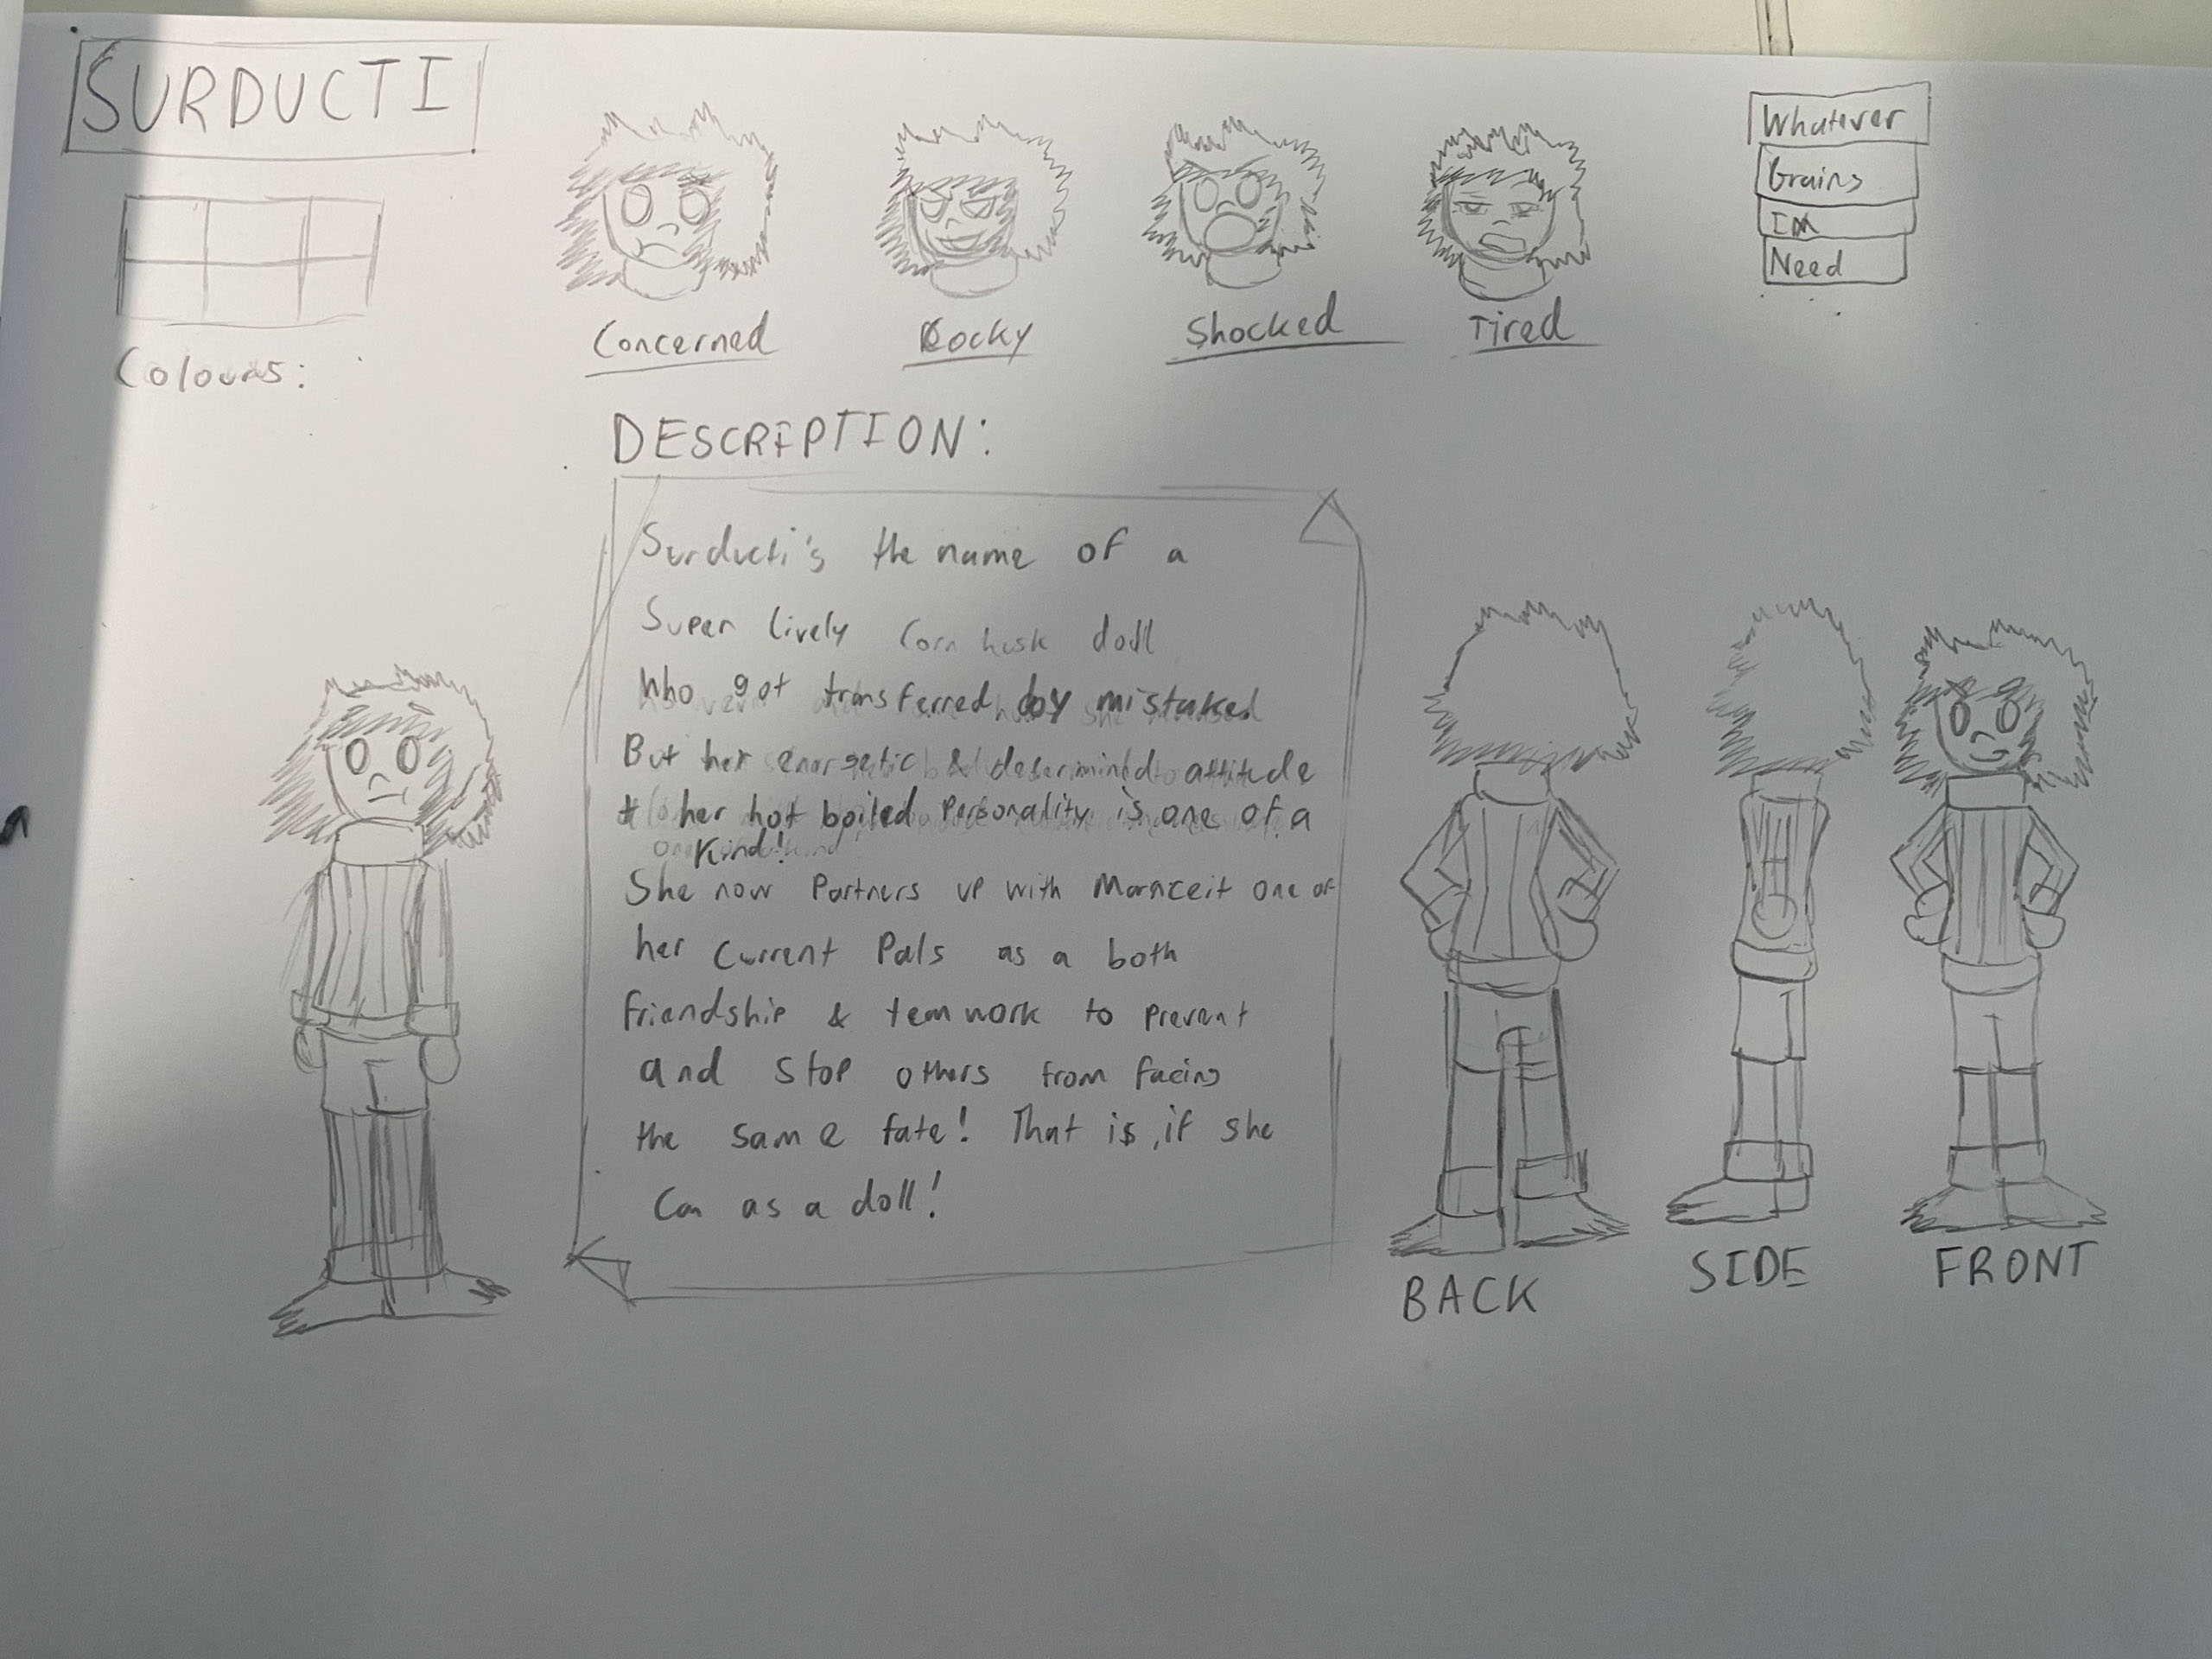 SURDUCTI
Colours:
Concerned
Cocky
Shocked
Tired
Whatever
Grains
Im
Need
DESCRIPTION:
Surducti's the name of a
Super lively Corn husk doll
Who got transferred by mistaked
But her energetic & deserminid attitude
& her hot boiled Personality is one of a
Kind!
She now Partners up with Marnceit one of
her Current Pals as a both
friendship & temwork to prevent
and stop others from facing
the same fate! That is, if she
Can as a doll!
BACK
SIDE
FRONT